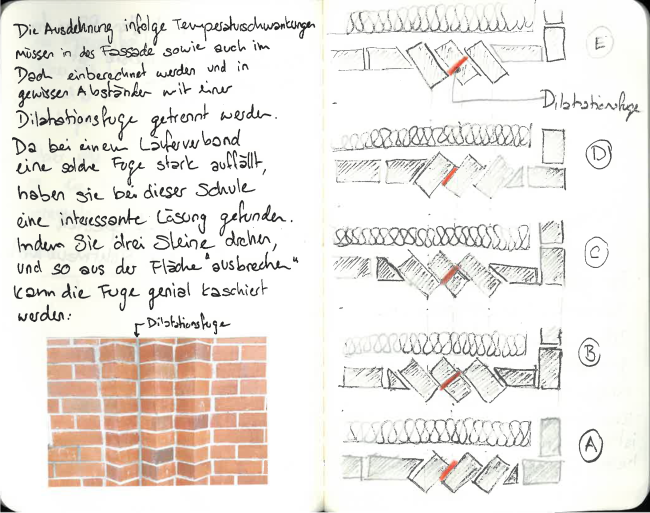 Die Ausdehnung infolge Temperaturschwankungen
müssen in der Fassade sowie auch im
Dach einberechnet werden und in
gewissen Abständen mit einer
Dilatationsfuge getrennt werden.
Da bei einem Läuferverband
eine solche Fuge stark auffällt,
haben sie bei dieser Schule
eine interessante Lösung gefunden.
Indem Sie drei Steine drehen,
und so aus der Fläche "ausbrechen"
kann die Fuge genial kaschiert
werden:
Dilatationsfuge
E
Dilatationsfuge
D
C
B
A